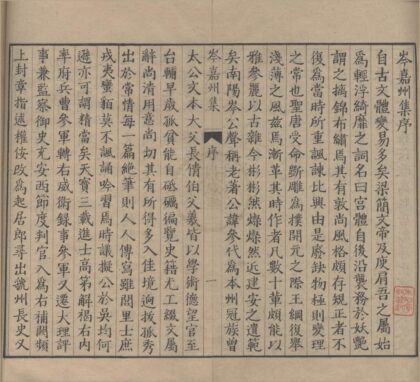 岑嘉州集序
自古文體變易多矣梁簡文帝及庾肩吾之屬始
為輕浮綺靡之詞名曰宮體自後沿襲務於妖艷
謂之摛錦布繡焉其有敦尚風格頗存規正者不
復為當時所重諷諫比興由是廢缺物極則變理
之常也聖唐受命斲雕為樸開元之際王綱復舉
淺薄之風茲焉漸革其時作者凡數十輩頗能以
雅參麗以古雜今彬彬然燦燦然近建安之遺範
矣南陽岑公聲稱尤著公諱參代為本州冠族曾
岑嘉州集 序 一
太公文本大父長倩伯父羲皆以學術德望官至
台輔早歲孤貧能自砥礪徧覽史籍尤工綴文屬
辭尚清用意尚切其有所得多入佳境迥拔孤秀
出於常情每一篇絕筆則人人傳寫雖閭里士庶
戎夷蠻貊莫不諷誦吟習焉時議擬公於吳均何
遜亦可謂精當矣天寶三載進士高第解褐右內
率府兵曹參軍轉右威衛錄事參軍又遷大理評
事兼監察御史充安西節度判官入為右補闕頻
上封章指述權佞改為起居郎尋出虢州長史又